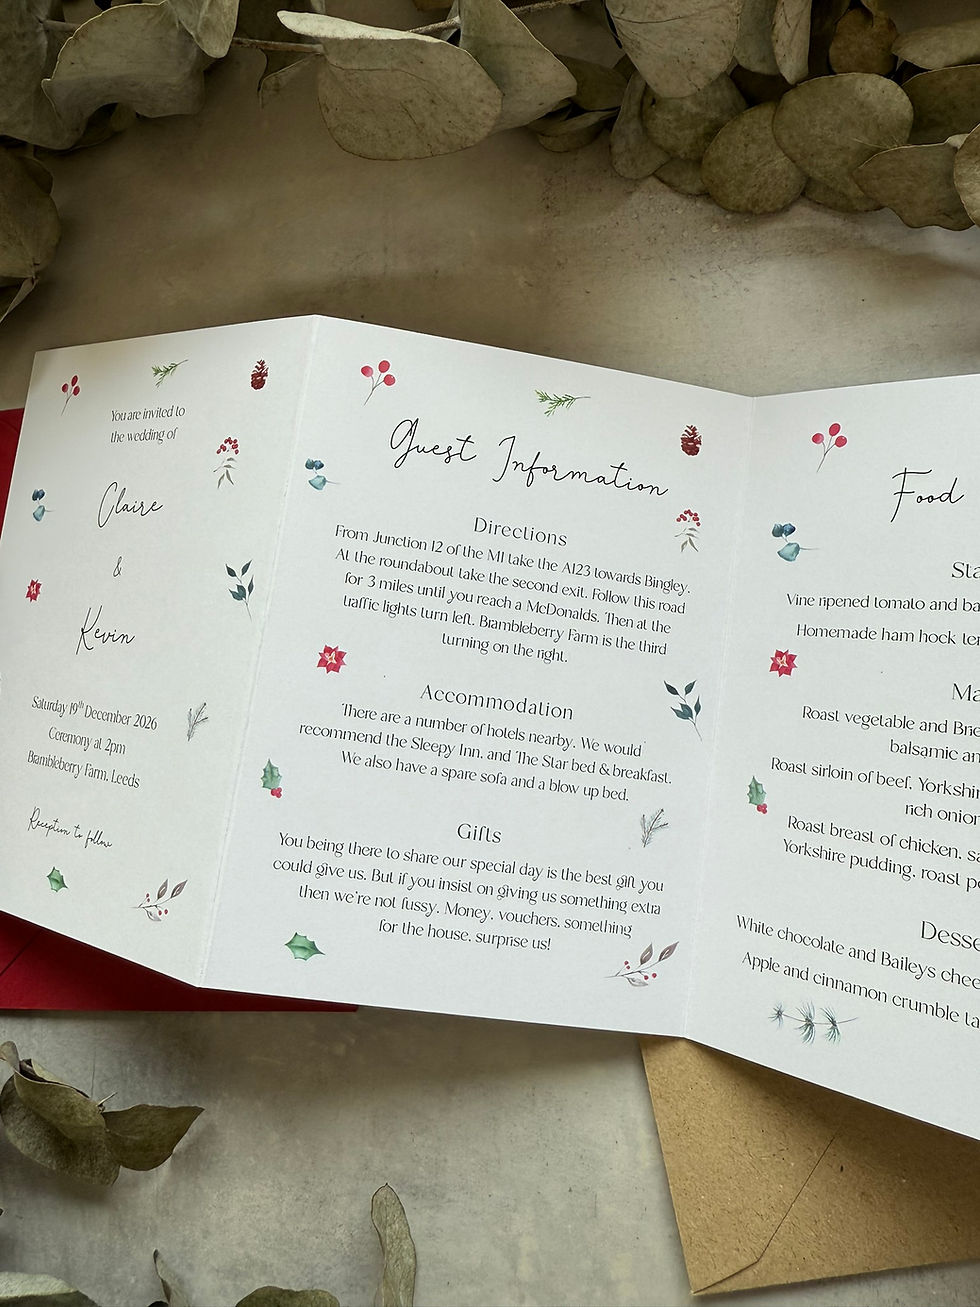 You are invited to
the wedding of
Claire
&
Kevin
Saturday 19th December 2026
Ceremony at 2pm
Brambleberry Farm, Leeds
Reception to follow
Guest Information
Directions
From Junction 12 of the M1 take the A123 towards Bingley.
At the roundabout take the second exit. Follow this road
for 3 miles until you reach a McDonalds. Then at the
traffic lights turn left. Brambleberry Farm is the third
turning on the right.
Accommodation
There are a number of hotels nearby. We would
recommend the Sleepy Inn, and The Star bed & breakfast.
We also have a spare sofa and a blow up bed.
Gifts
You being there to share our special day is the best gift you
could give us. But if you insist on giving us something extra
then we're not fussy. Money, vouchers, something
for the house, surprise us!
Food
Vine ripened tomato and
Homemade ham hock
Roast vegetable and
balsamic
Roast sirloin of beef,
rich
Roast breast of chicken,
Yorkshire pudding, roast
White chocolate and Baileys
Apple and cinnamon crumble